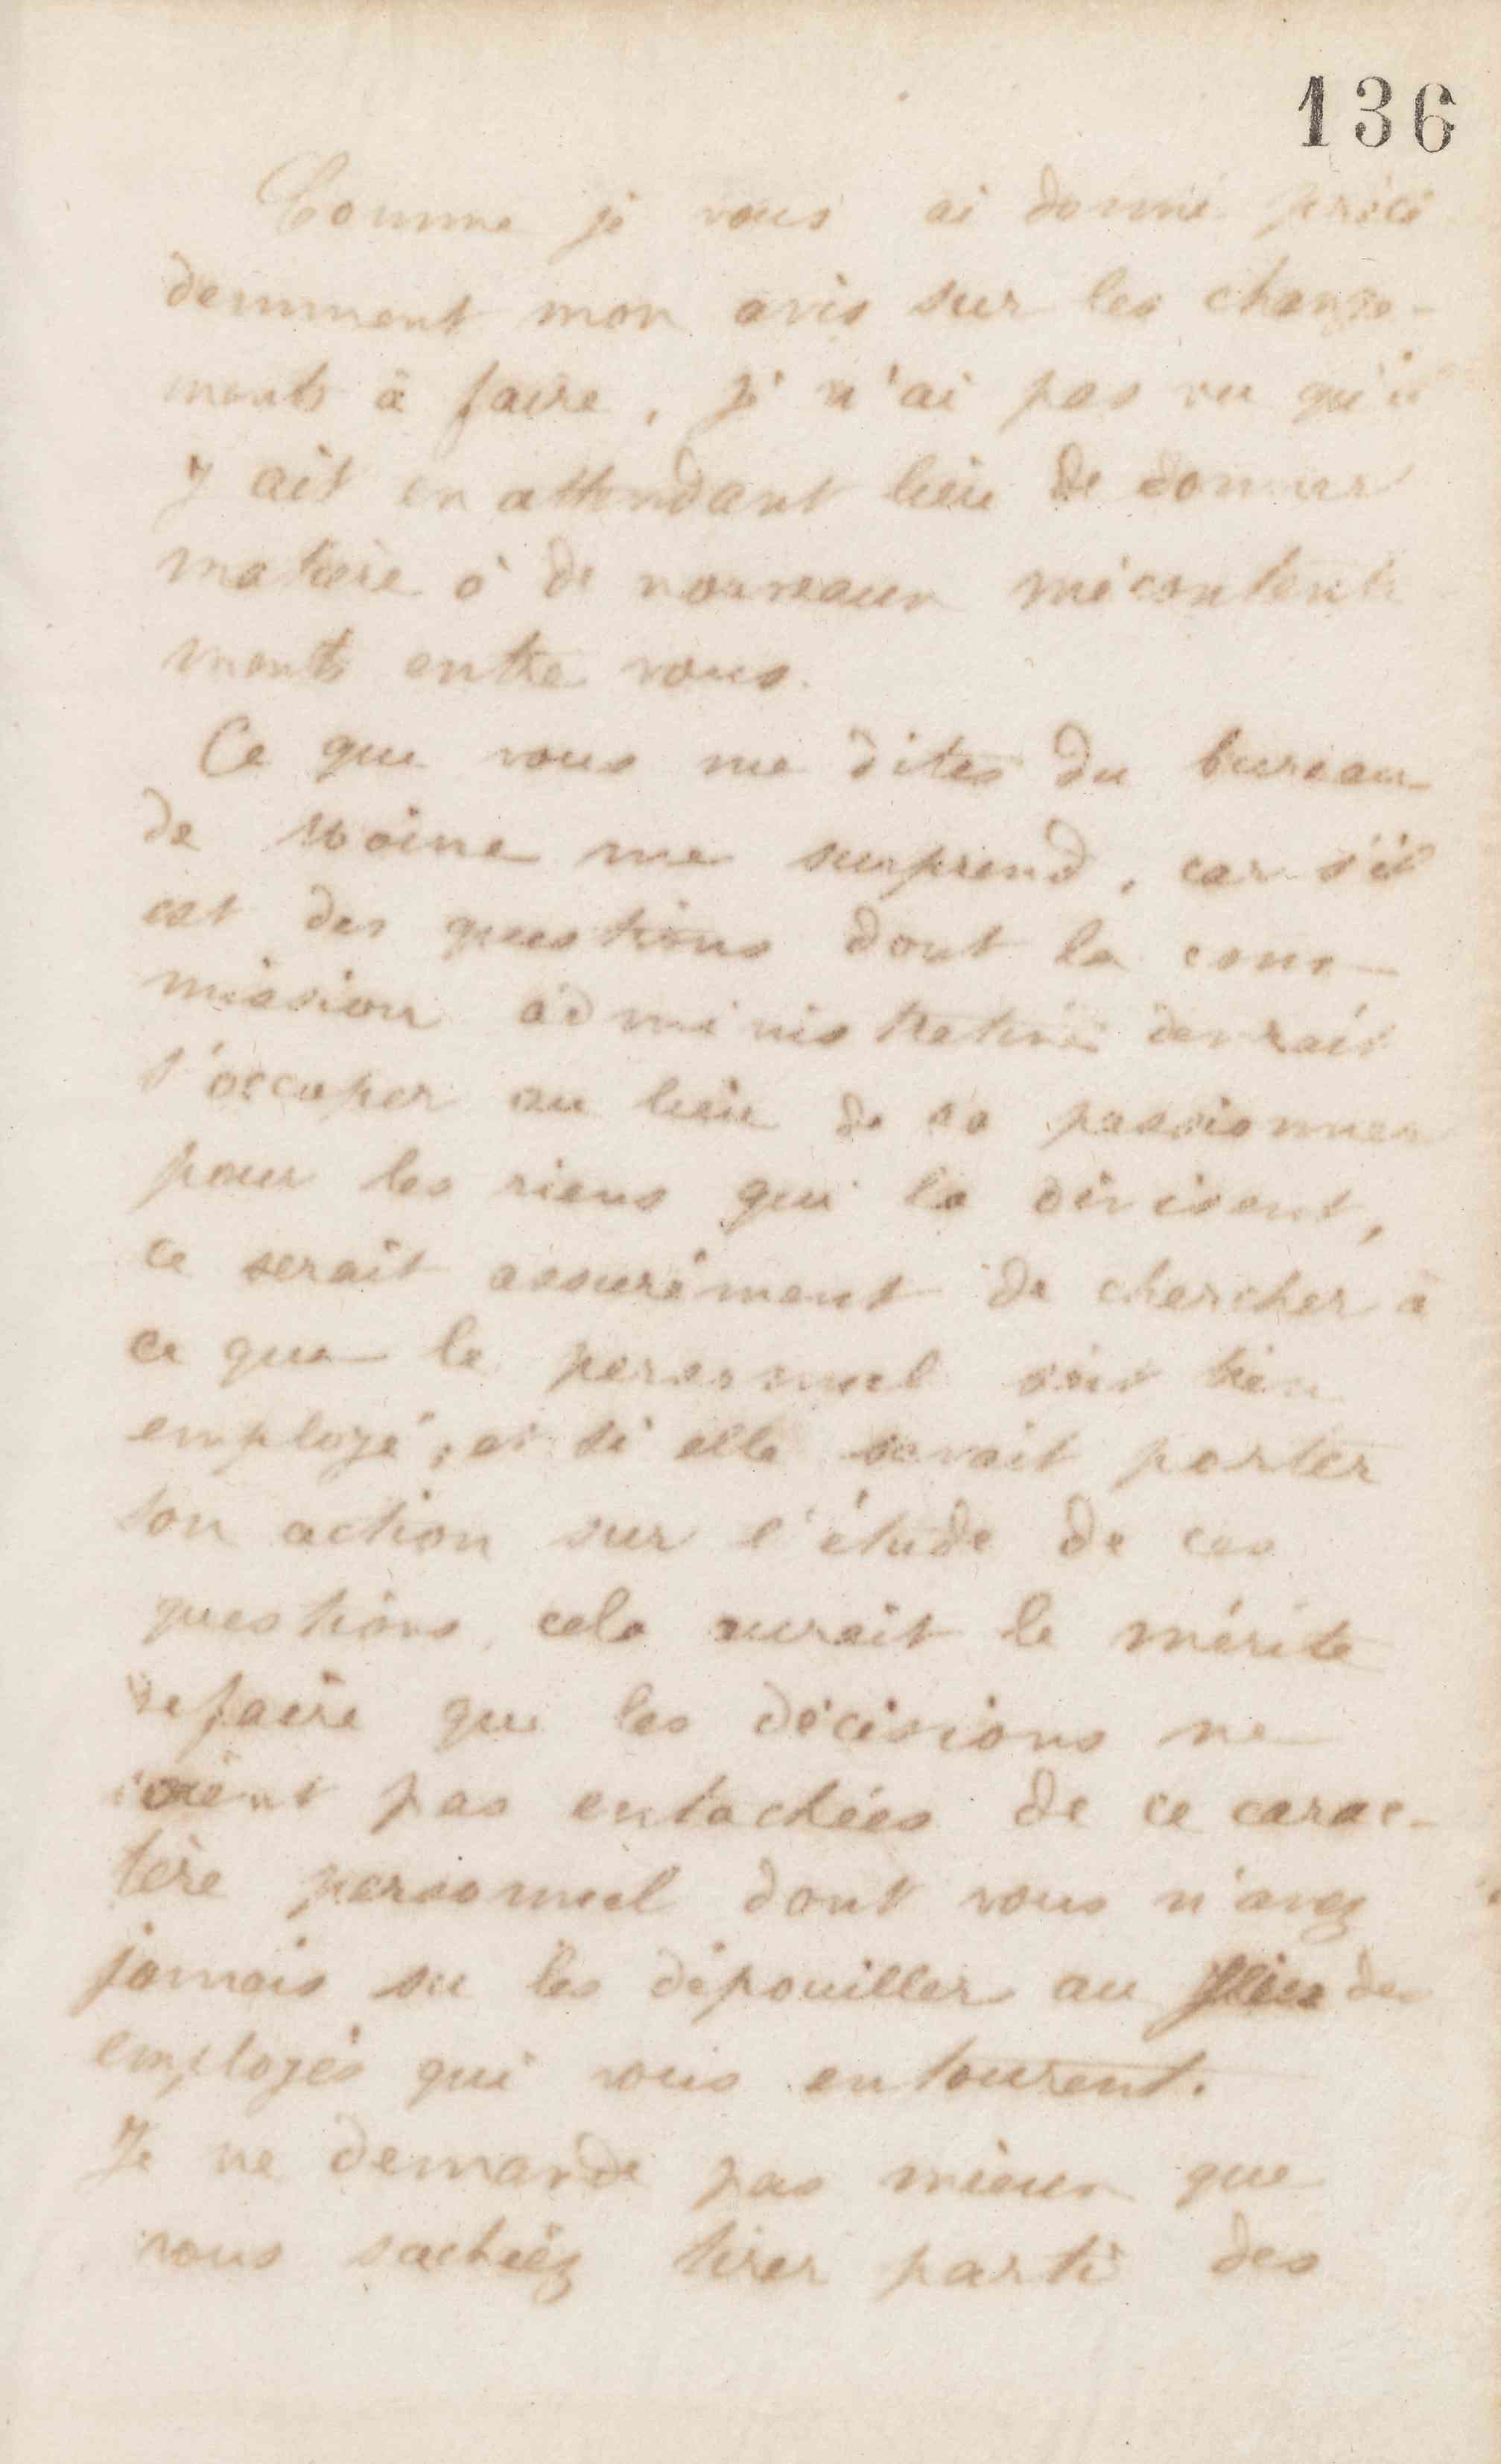 136
Comme je vous ai donné précé
demment mon avis sur les change-
ments à faire, je n'ai pas vu qu'il
y ait en attendant lieu de donner
matière à de nouveaux mécontente
ments entre vous.
Ce que vous me dites du bureau
de Moine me surprend, car s'il
est des questions dont la com-
mission administrative devrait
s'occuper au lieu de se passionner
pour les riens qui la divisent,
ce serait assurément de chercher à
ce que le personnel soit bien
employé, et si elle savait porter
son action sur l'étude de ces
questions, cela aurait le mérite
de faire que les décisions ne
soient pas entachées de ce carac-
tère personnel dont vous n'avez
jamais su les dépouiller au des
employés qui vous entourent.
Je ne demande pas mieux que
vous sachiez tirer parti des